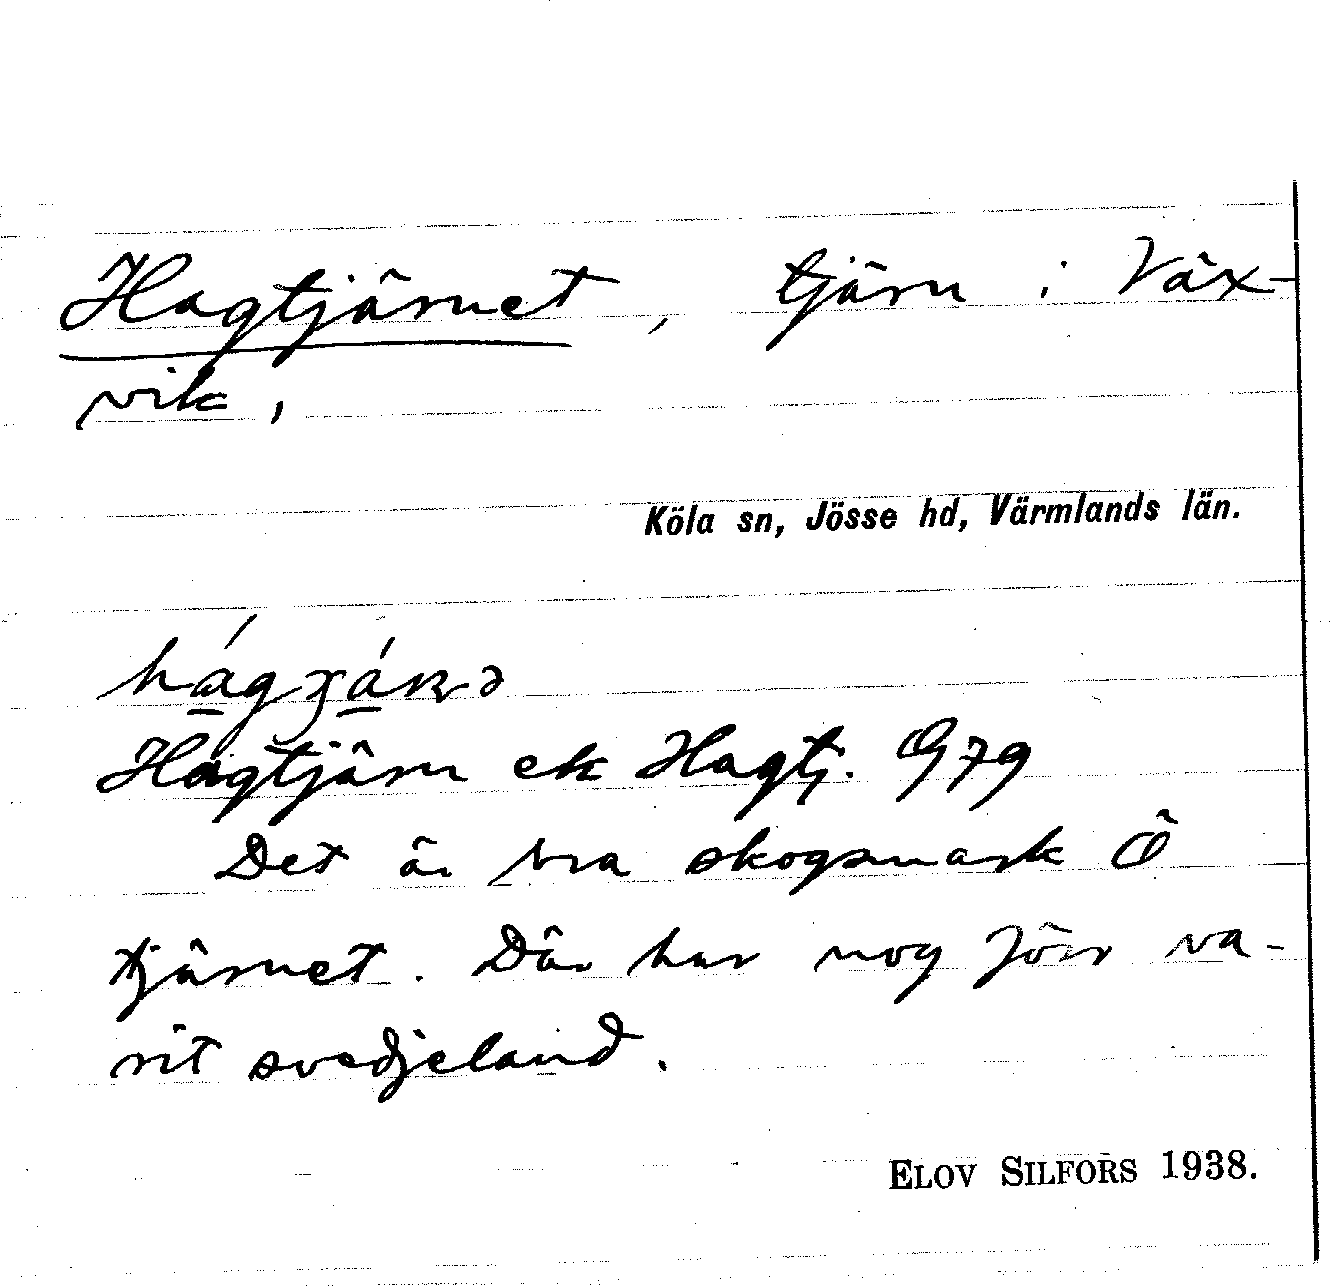 Hagtjärnet, tjärn i Växvik,
Köla sn, Jösse hd, Värmlands län.
Hagtjärn ek Hagtj. G79
Det är bra skogsmark Ö
tjärnet. Där har nog förr va-
rit svedjeland.
ELOV SILFORS 1938.